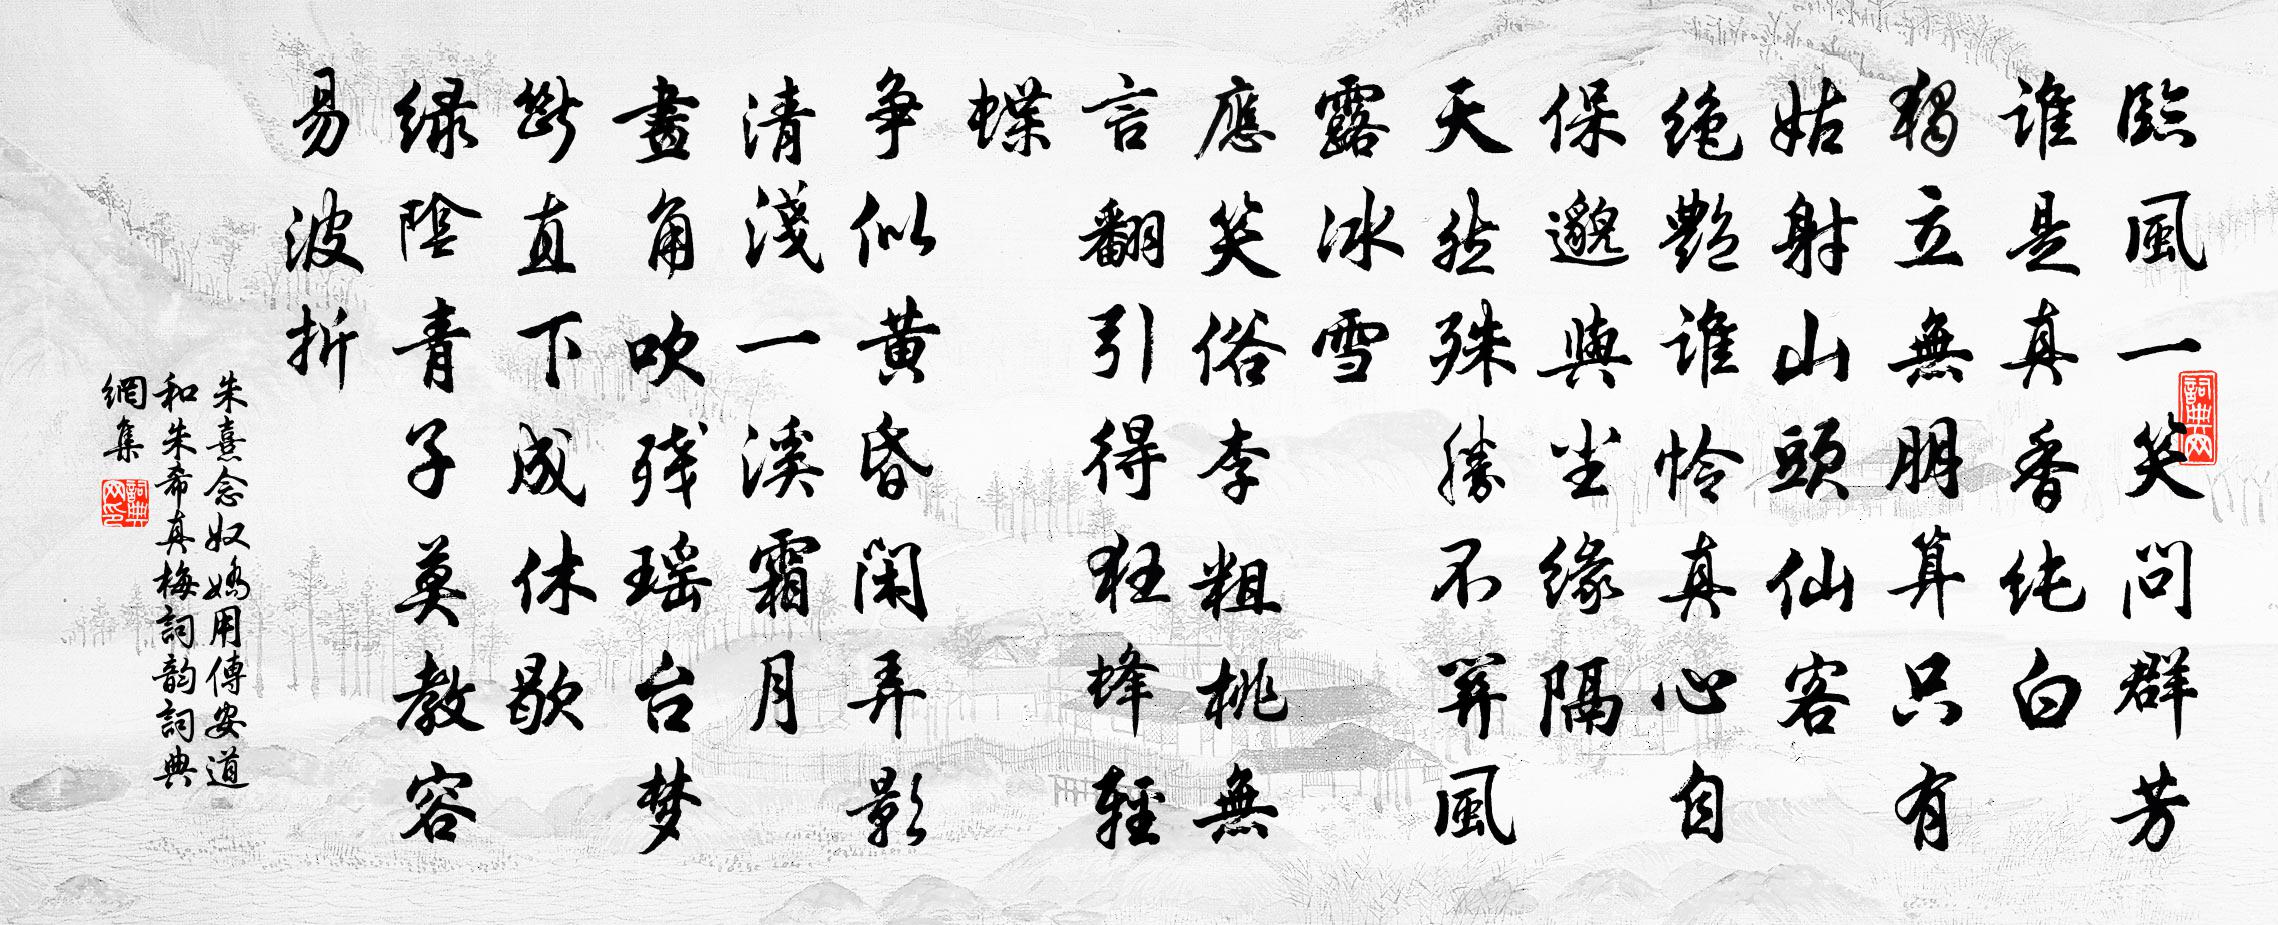 臨風一笑問群芳
誰是真香純白
獨立無朋算只有
姑射山頭仙客
絶艷誰怜真心自
保邈與尘缘隔
天然殊勝不關風
露冰雪
應笑俗李粗桃無
言翻引得狂蜂輕
蝶
争似黄昏闲弄影
清淺一溪霜月
畫角吹残瑶台梦
断直下成休歇
緑陰青子莫教容
易波折
朱熹念奴嬌用傅安道
和朱希真梅詞韵詞典
網集
詞典网
詞典网